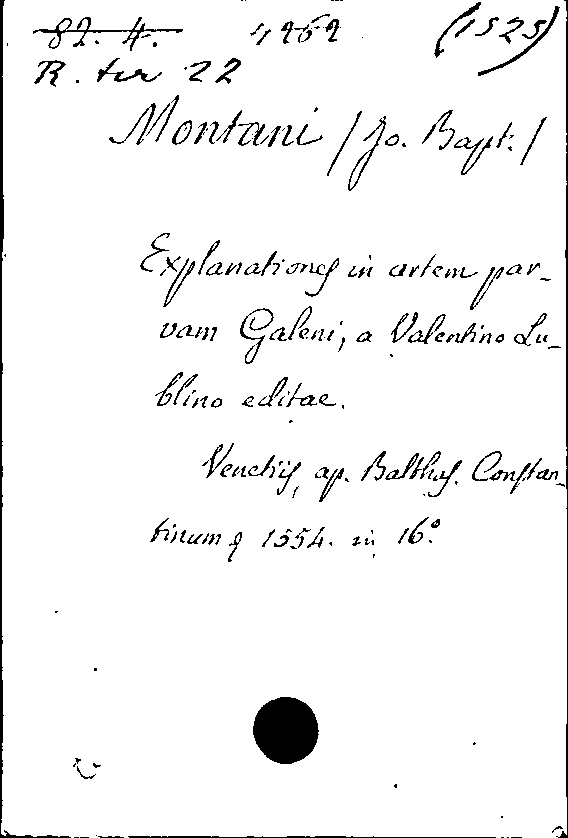 82. 4. 4262 (1525)
R. ter 22
Montani / Jo. Bapt. /
Explanationes in artem par-
vam Galeni, a Valentino Lu-
blino editae.
Venetiis, ap. Balthas. Constan-
tinum 1554. in 16°.